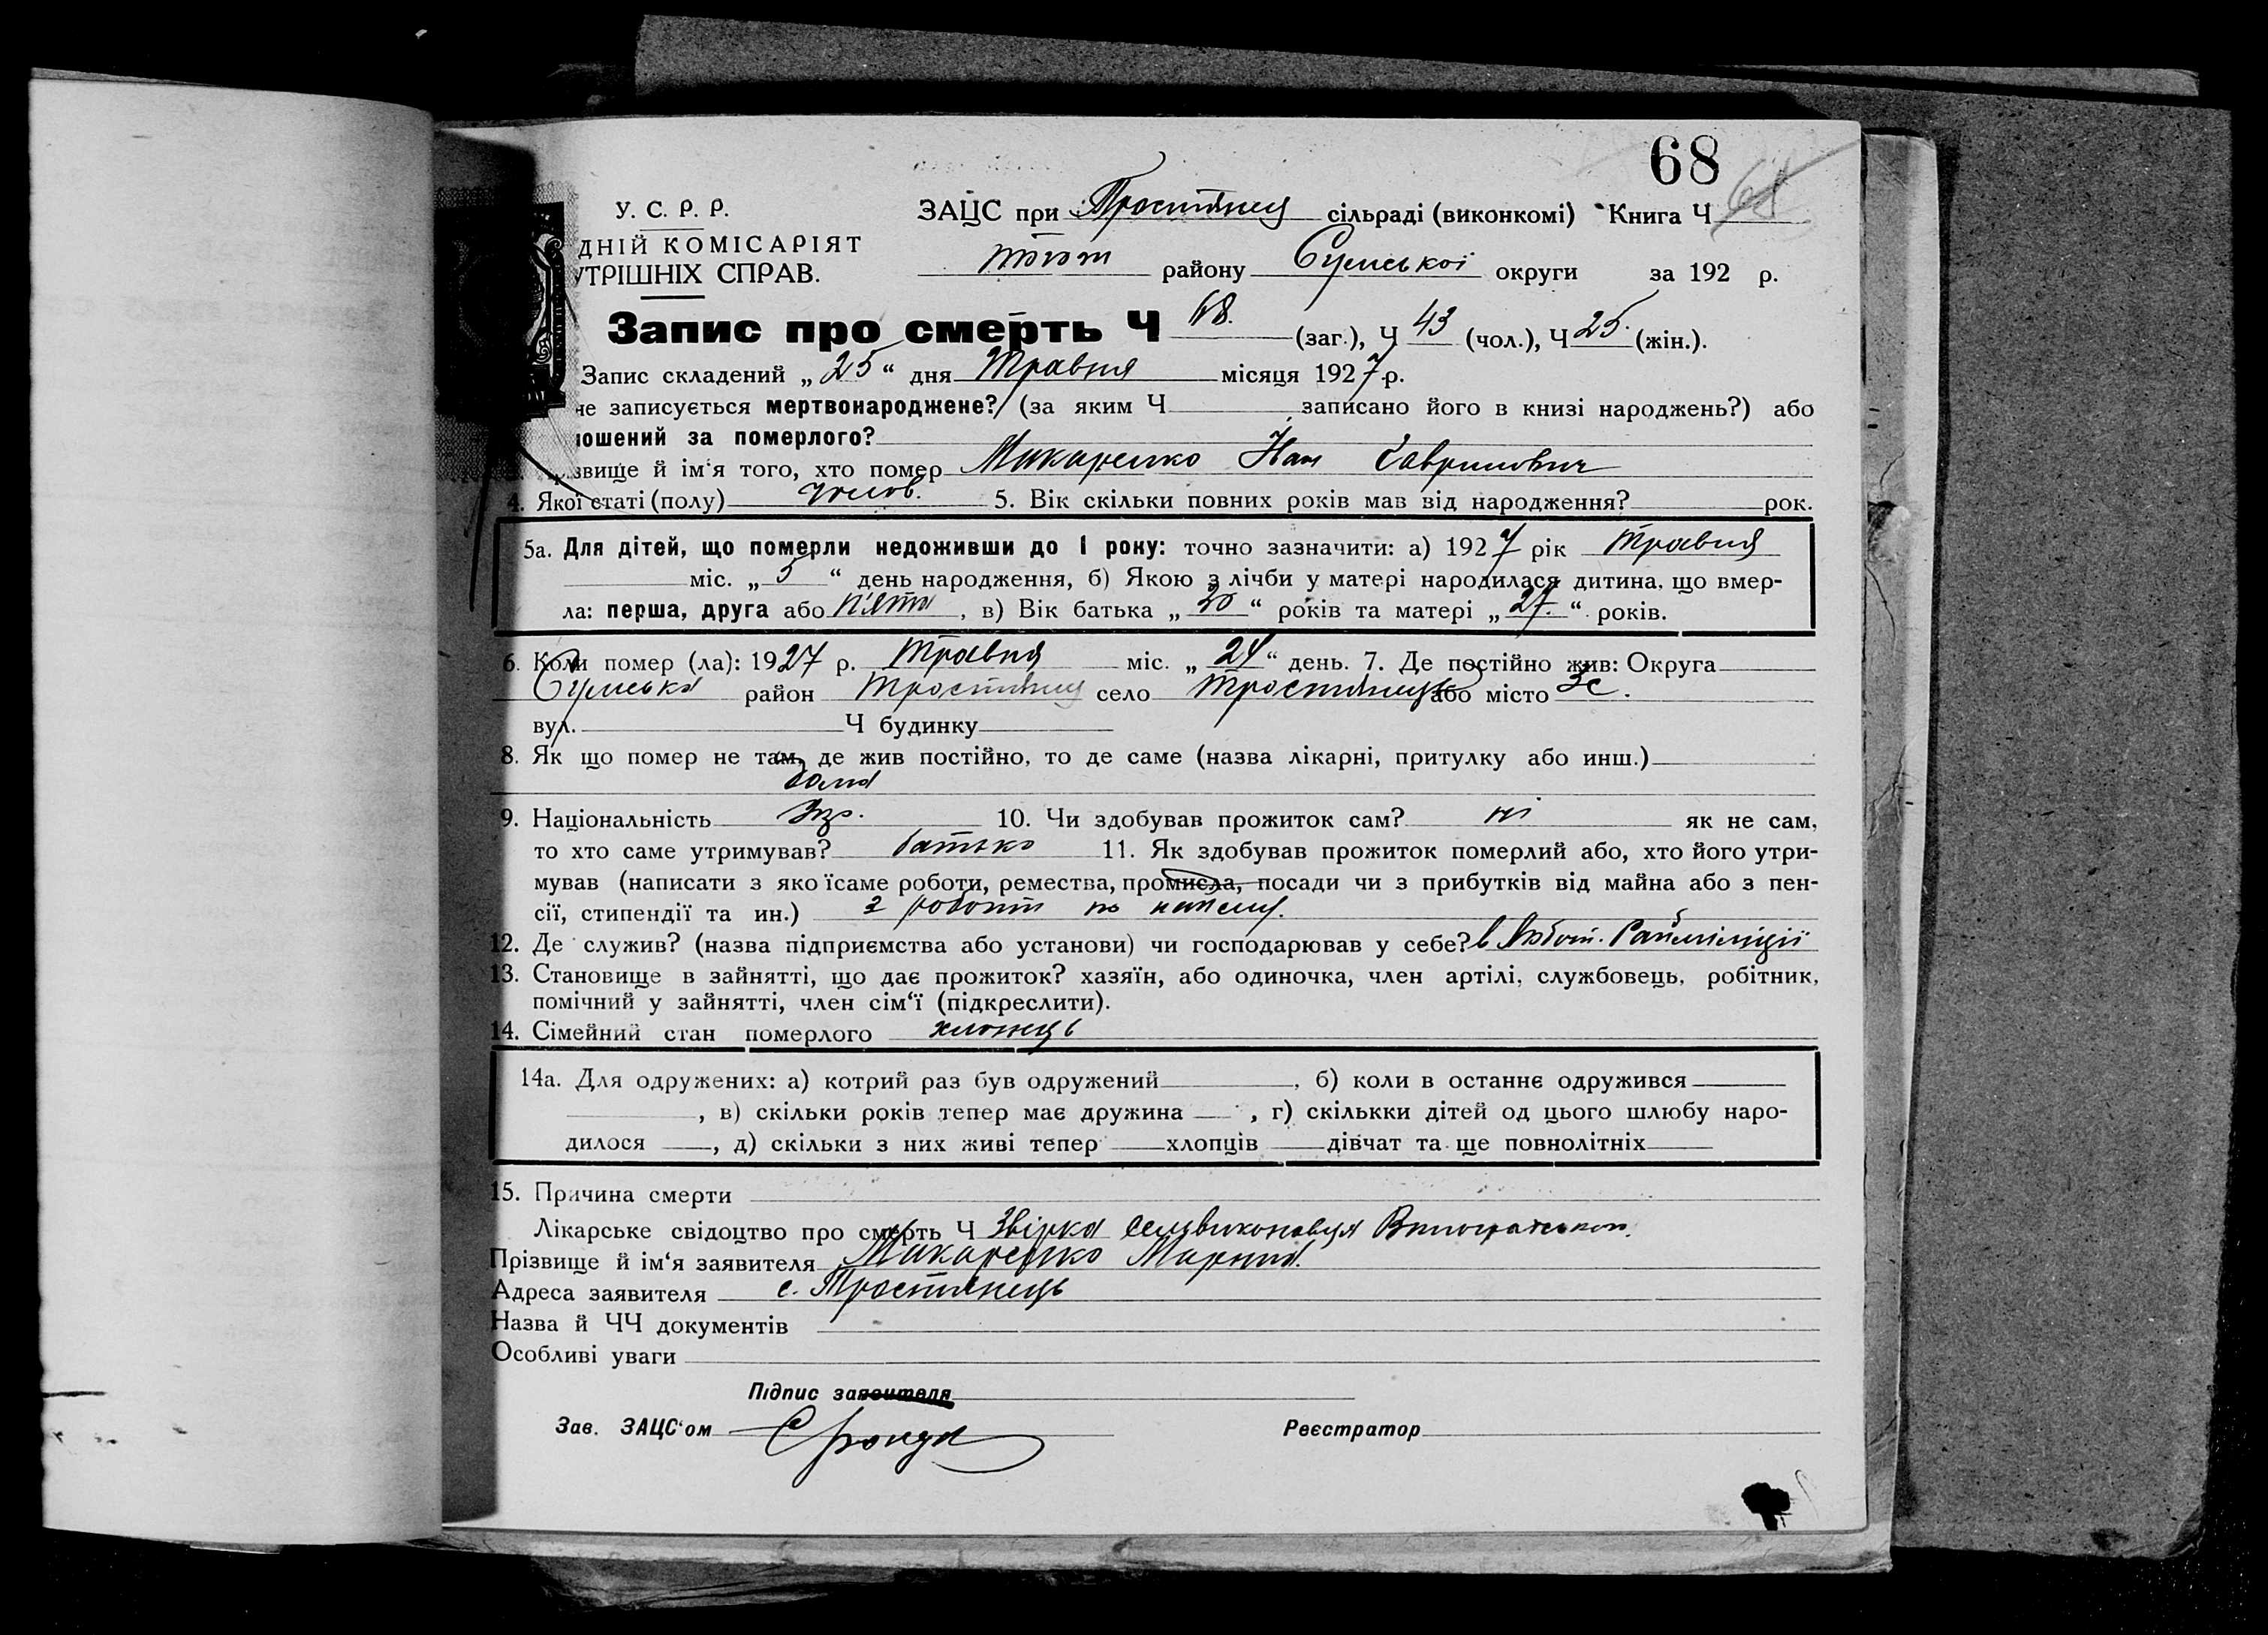 68
У. С. Р. Р.
ЗАЦС при Тростянец сільраді (виконкомі) Книга Ч 68
ДНІЙ КОМІСАРІЯТ
тогож району Сумської округи за 192 р.
УТРІШНІХ СПРАВ.
Запис про смерть Ч 68. (заг.), Ч 43 (чол.), Ч 25. (жін.).
Запис складений „ 25 “ дня Травня місяця 1927 р.
не записується мертвонароджене? (за яким Ч записано його в книзі народжень?) або
лошений за померлого?
звище й ім‘я того, хто помер Макаренко Іван Гаврилович
4. Якої статі (полу) чолов. 5. Вік скільки повних років мав від народження? рок.
5а. Для дітей, що померли недоживши до 1 року: точно зазначити: а) 1927 рік Травня
міс. „ 5 “ день народження, б) Якою з лічби у матері народилася дитина, що вмер-
ла: перша, друга або п'ята, в) Вік батька „ 30 “ років та матері „ 27. “ років.
6. Коли помер (ла): 1927 р. Травня міс. „ 24 “ день. 7. Де постійно жив: Округа
Сумська район Тростянец село Тростянець або місто
вул. Ч будинку
8. Як що помер не там, де жив постійно, то де саме (назва лікарні, притулку або инш.)
дома
9. Національність Укр. 10. Чи здобував прожиток сам? ні як не сам,
то хто саме утримував? батько 11. Як здобував прожиток померлий або, хто його утри-
мував (написати з якоїсаме роботи, ремества, промисла, посади чи з прибутків від майна або з пен-
сії, стипендії та ин.) з роботи по найму.
12. Де служив? (назва підприємства або установи) чи господарював у себе? в Райміліції
13. Становище в зайнятті, що дає прожиток? хазяїн, або одиночка, член артілі, службовець, робітник,
помічний у зайнятті, член сім‘ї (підкреслити).
14. Сімейний стан померлого хлопець
14а. Для одружених: а) котрий раз був одружений , б) коли в останнє одружився
, в) скільки років тепер має дружина , г) скількки дітей од цього шлюбу наро-
дилося , д) скільки з них живі тепер хлопців дівчат та ще повнолітніх
15. Причина смерти
Лікарське свідоцтво про смерть Ч Звірка селвиконавця
Прізвище й ім‘я заявителя Макаренко Марина.
Адреса заявителя с. Тростянець
Назва й ЧЧ документів
Особливі уваги
Підпис заявителя
Зав. ЗАЦС‘ом Реєстратор